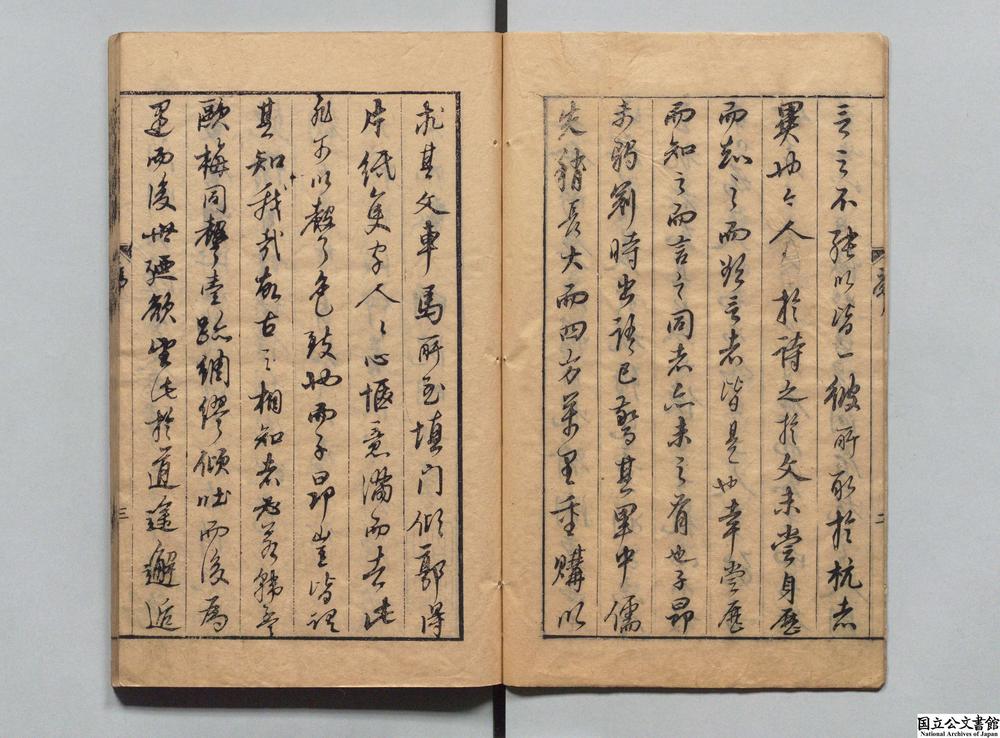 言之不能以皆一彼所取於杭者
異也今人人於詩之於文未嘗身歷
而知之而欲言者皆是也幸嘗歷
而知之而言之同者亦未之有也子昂
未弱冠時出語已驚其里中儒
先稍長大而四方萬里重購以
求其文車馬所至填門傾郭得
片紙隻字人人心愜意滿而去此
非可以聲色致也而子昂豈皆謂
其知我哉故古之相知者必若韓孟
歐梅同聲壹跡綢繆傾吐而後為
遇而後世廼欲望此於道途邂逅
二
三
国立公文書館
National Archives of Japan